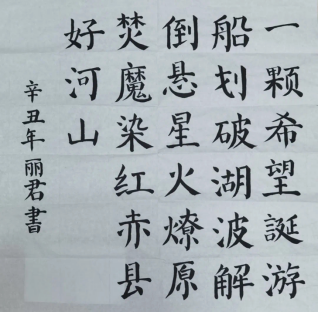 一颗希望誕游
船划破湖波解
倒悬星火燎原
焚魔染红赤县
好河山
辛丑年丽君書